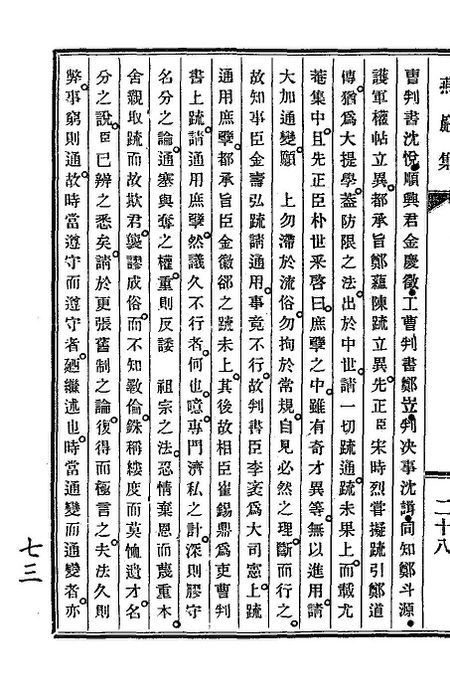 燕巖集
二十八
曹判書沈悅順興君金慶徵工曹判書鄭岦判決事沈諿同知鄭斗源
護軍權帖立異都承旨鄭蘊陳疏立異先正臣宋時烈嘗擬疏引鄭道
傳猶爲大提學蓋防限之法出於中世請一切疏通疏未果上而載尤
菴集中且先正臣朴世采啓曰庶孼之中雖有奇才異等無以進用請
大加通變願 上勿滯於流俗勿拘於常規自見必然之理斷而行之
故知事臣金壽弘疏請通用事竟不行故判書臣李袤爲大司憲上疏
通用庶孼都承旨臣金徽郤之疏未上其後故相臣崔錫鼎爲吏曹判
書上疏請通用庶孼然議久不行者何也噫專門濟私之計深則膠守
名分之論通塞與奪之權重則反諉 祖宗之法恐情棄恩而蔑重本
舍親取疏而故欺君襲謬成俗而不知斁倫銖稱縷度而莫恤遺才名
分之說臣已辨之悉矣請於更張舊制之論復得而極言之夫法久則
弊事窮則通故時當遵守而遵守者廼繼述也時當通變而通變者亦
七三